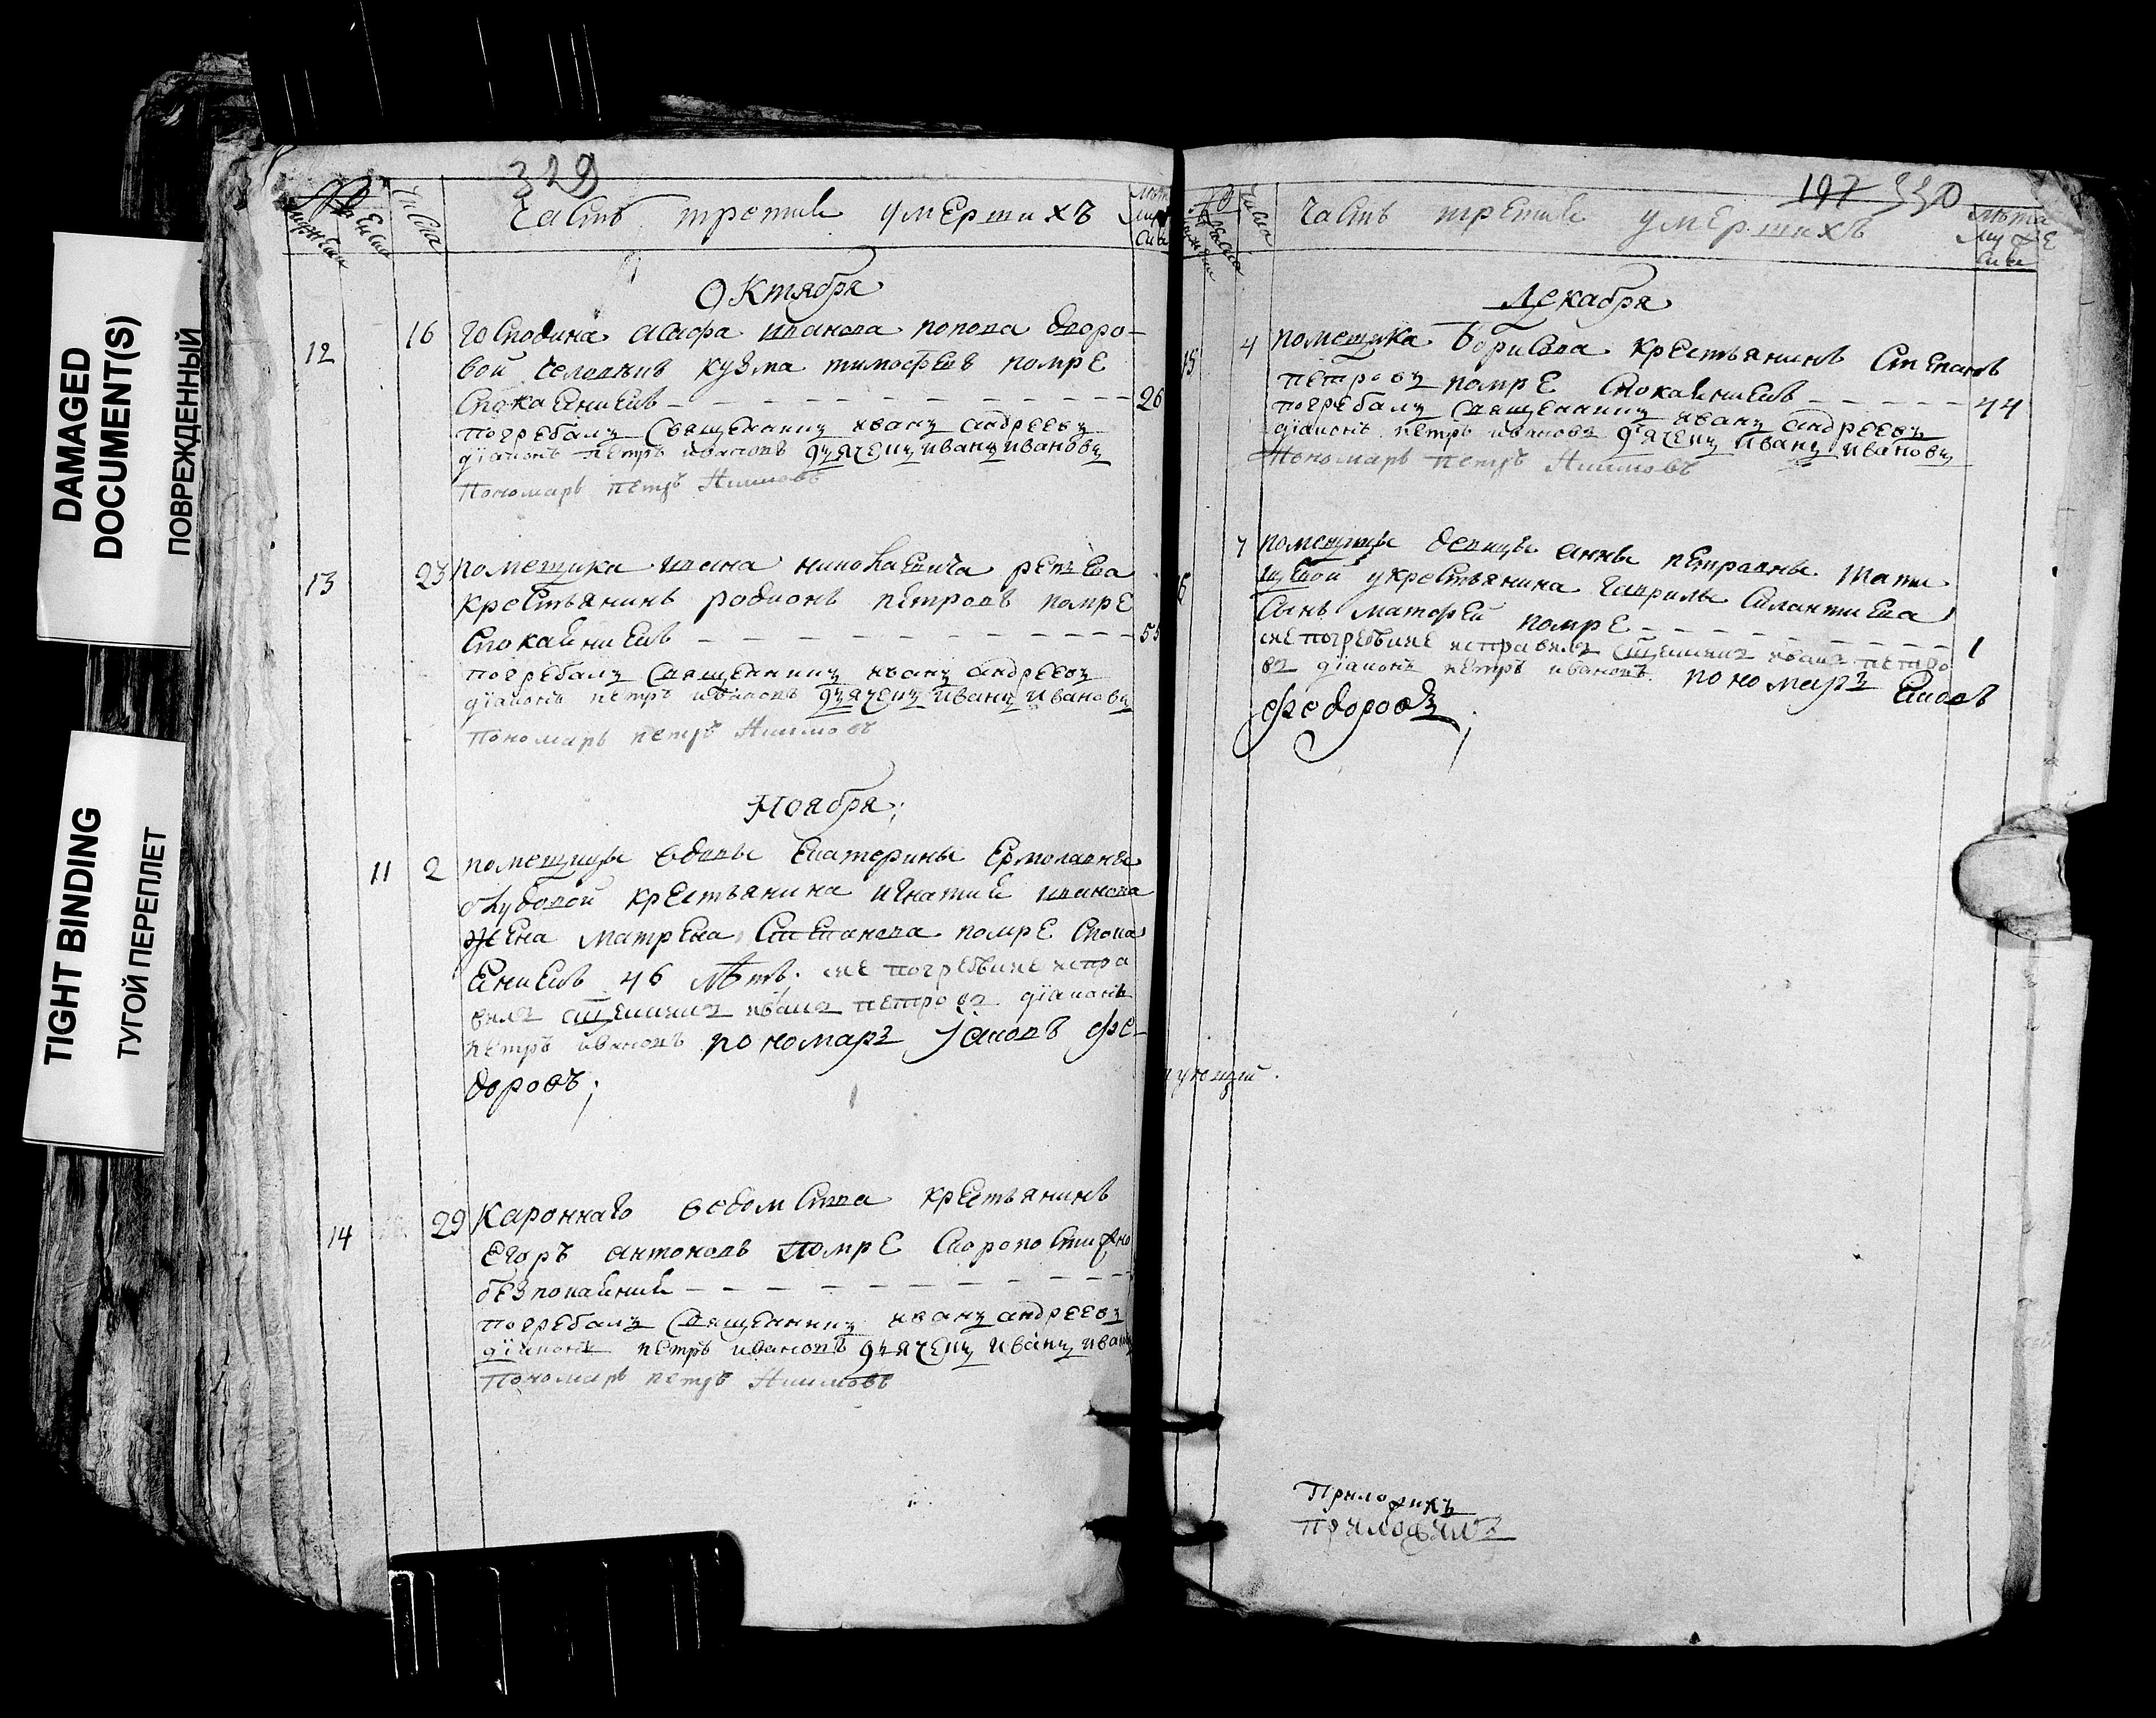 DAMAGED
DOCUMENT(S)
ПОВРЕЖДЕННЫЙ
TIGHT BINDING
ТУГОЙ ПЕРЕПЛЕТ
329
числа
часть третия умерших
Октября
12 16 господина асафа иванова попова дворо-
вой человекъ кузма тимофеевъ помре
споkаениемъ 26
погребалъ священникъ иванъ андреевъ
диаконъ петръ ивановъ дьячекъ иванъ ивановъ
Пономарь петръ
13 23 помещика ивана николаевича
крестьянинъ родионъ петровъ помре
спокаяниемъ 55
погребалъ священникъ иванъ андреевъ
диаконъ петръ ивановъ дьячекъ иванъ ивановъ
Пономарь петръ
Ноября
11 2 помещицы вдовы екатерины ермолавны
крестьянина игнатия иванова
жена матрена степанова помре спока
ениемъ 46 летъ. погребение испра
вилъ священникъ иванъ петровъ диаконъ
петръ ивановъ пономарь яковъ фе-
доровъ;
14 29 кароннаго ведомства крестьянинъ
егоръ антоновъ помре скоропостижно
безпокаяния
погребалъ священникъ иванъ андреевъ
диаконъ петръ ивановъ дьячекъ иванъ
Пономарь петръ
197 330
числа
часть третия умерших
лета
Декабря
15 4 помещика борисова крестьянинъ степанъ
петровъ помре спокаяниемъ 44
погребалъ священникъ иванъ андреевъ
диаконъ петръ ивановъ дьячекъ иванъ ивановъ
Пономарь петръ
7 помещицы девицы анны петравны тати
щевой укрестьянина гаврилы силантиева
сынъ матфей помре 1
погребение исправилъ священникъ иванъ петро
въ диаконъ петръ ивановъ пономарь яковъ
федоровъ